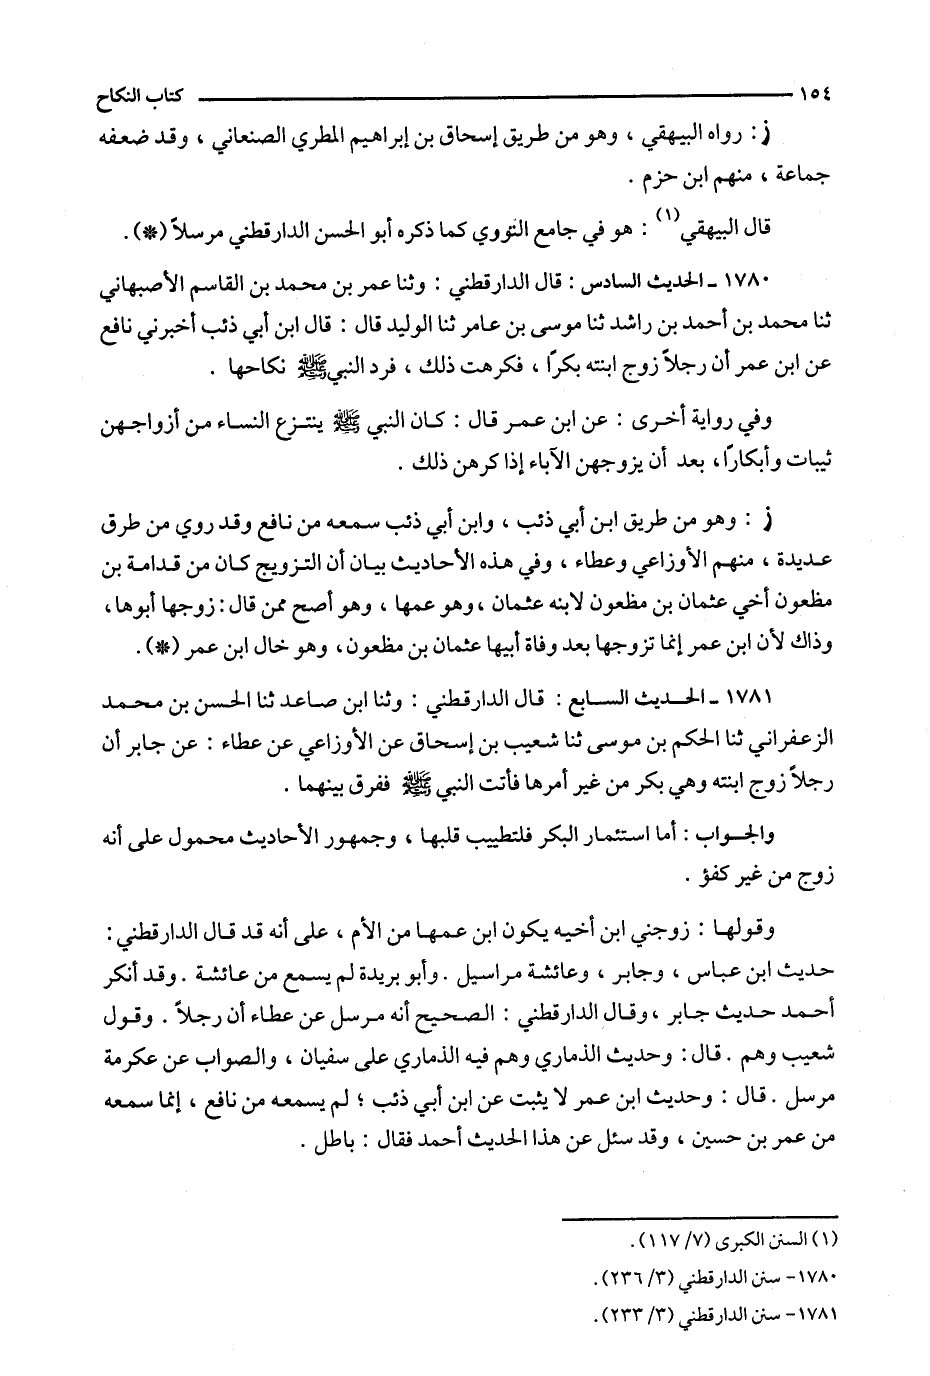 ١٥٤ كتاب النكاح
ز : رواه البيهقي ، وهو من طريق إسحاق بن إبراهيم المطري الصنعاني ، وقد ضعفه
جماعة ، منهم ابن حزم .
قال البيهقي (١) : هو في جامع الثوري كما ذكره أبو الحسن الدارقطني مرسلاً (*).
١٧٨٠ ـ الحديث السادس : قال الدارقطني : وثنا عمر بن محمد بن القاسم الأصبهاني
ثنا محمد بن أحمد بن راشد ثنا موسى بن عامر ثنا الوليد قال : قال ابن أبي ذئب أخبرني نافع
عن ابن عمر أن رجلاً زوج ابنته بكرًا ، فكرهت ذلك ، فرد النبي ﷺ نكاحها .
وفي رواية أخرى : عن ابن عمر قال : كان النبي ﷺ ينتزع النساء من أزواجهن
ثيبات وأبكارًا، بعد أن يزوجهن الآباء إذا كرهن ذلك .
ز : وهو من طريق ابن أبي ذئب ، وابن أبي ذئب سمعه من نافع وقد روي من طرق
عديدة ، منهم الأوزاعي وعطاء ، وفي هذه الأحاديث بيان أن التزويج كان من قدامة بن
مظعون أخي عثمان بن مظعون لابنه عثمان ،وهو عمها ، وهو أصح ممن قال : زوجها أبوها،
وذاك لأن ابن عمر إنما تزوجها بعد وفاة أبيها عثمان بن مظعون، وهو خال ابن عمر (*).
١٧٨١ ـ الحديث السابع : قال الدارقطني : وثنا ابن صاعد ثنا الحسن بن محمد
الزعفراني ثنا الحكم بن موسى ثنا شعيب بن إسحاق عن الأوزاعي عن عطاء : عن جابر أن
رجلاً زوج ابنته وهي بكر من غير أمرها فأتت النبي ﷺ ففرق بينهما .
والجواب : أما استئمار البكر فلتطييب قلبها ، وجمهور الأحاديث محمول على أنه
زوج من غير كفؤ .
وقولها : زوجني ابن أخيه يكون ابن عمها من الأم ، على أنه قد قال الدارقطني :
حديث ابن عباس ، وجابر ، وعائشة مراسيل . وأبو بريدة لم يسمع من عائشة . وقد أنكر
أحمد حديث جابر ، وقال الدارقطني : الصحيح أنه مرسل عن عطاء أن رجلاً . وقول
شعيب وهم . قال : وحديث الذماري وهم فيه الذماري على سفيان ، والصواب عن عكرمة
مرسل . قال : وحديث ابن عمر لا يثبت عن ابن أبي ذئب ؛ لم يسمعه من نافع ، إنما سمعه
من عمر بن حسين ، وقد سئل عن هذا الحديث أحمد فقال : باطل .
(١) السنن الكبرى (٧/ ١١٧).
١٧٨٠- سنن الدارقطني (٣/ ٢٣٦).
١٧٨١- سنن الدارقطني (٣/ ٢٣٣).